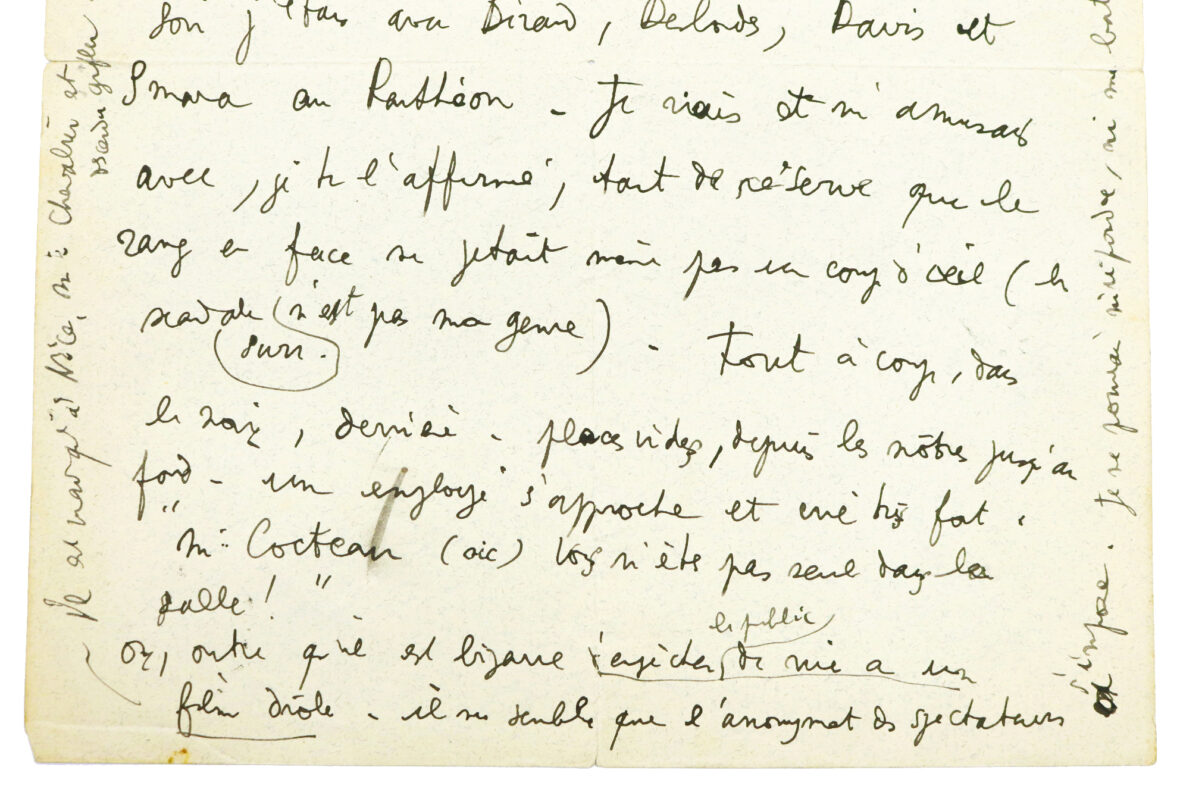 soir j'étais avec Bérard, Desbordes, Davis et
Smara au Panthéon – Je riais et m'amusais
avec, je te l'affirme, tant de réserve que le
rang en face ne jetait même pas un coup d'œil (le
scandale n'est pas mon genre) – Tout à coup, dans
(surr.
le noir, derrière – places vides, depuis les nôtres jusqu'au
fond – un employé s'approche et crie très fort :
"Mr Cocteau (sic) vous n'êtes pas seul dans la
salle!"
le public
Or, outre qu'il est bizarre d'empêcher de rire a un
film drôle – il me semble que l'anonymat des spectateurs
s'impose. Je ne pouvais ni répondre, ni me
Il ne manqu'à Nice, ni à Chevalier et